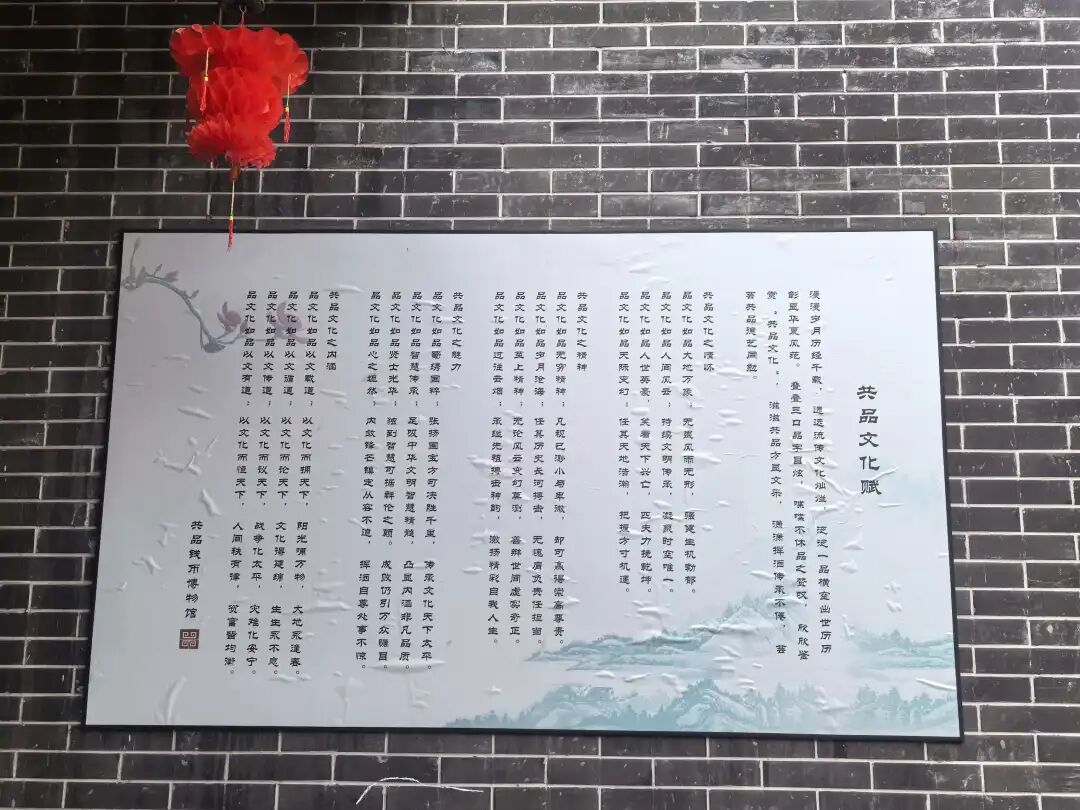 共品文化赋
漫漫岁月历经千载，源远流传文化灿烂，浣浣一品横空出世历历
彰显华夏风范。叠叠三口品字目炫，喋喋不休品之赞叹，欣欣鉴
赏“共品文化”，滋滋共品方显文采，潇潇挥洒传承不倦，荟
荟共品德艺同勉。
共品文化之情怀
品文化如品大地万象：无畏风雨无形，强健生机勃郁。
品文化如品人间风云：持续文明传承，凝聚时空唯一。
品文化如品人世英豪：笑看天下兴亡，匹夫力挽乾坤。
品文化如品天际变幻：任其天地浩瀚，把握方可机运。
共品文化之精神
品文化如品无穷精神：凡视已渺小与卑微，却可赢得崇高尊贵。
品文化如品岁月沧海：任其历史长河搏击，无愧肩负责任担当。
品文化如品至上精神：无论风云变幻莫测，善辩世间虚实奇正。
品文化如品过往云烟：承继先祖搏击神韵，激扬精彩自我人生。
共品文化之魅力
品文化如品蜀绣国粹：张扬国宝方可决胜千里，传承文化天下太平。
品文化如品智慧传承：足吸中华文明智慧精髓，凸显内涵非凡品质。
品文化如品贤士光华：独到智慧可摇群伦之颠，成败仍引万众瞩目。
品文化如品心之坦然：内敛锋芒镇定从容不迫，挥洒自尊处事不惊。
共品文化之内涵
品文化如品以文载道：以文化而拥天下，阳光哺万物，大地系逢春。
品文化如品以文循道：以文化而论天下，文化得延绵，生生系不息。
品文化如品以文传道：以文化而议天下，战争化太平，灾难化安宁。
品文化如品以文有道：以文化而恒天下，人间秩有律，贫富皆均衡。
共品钱币博物馆